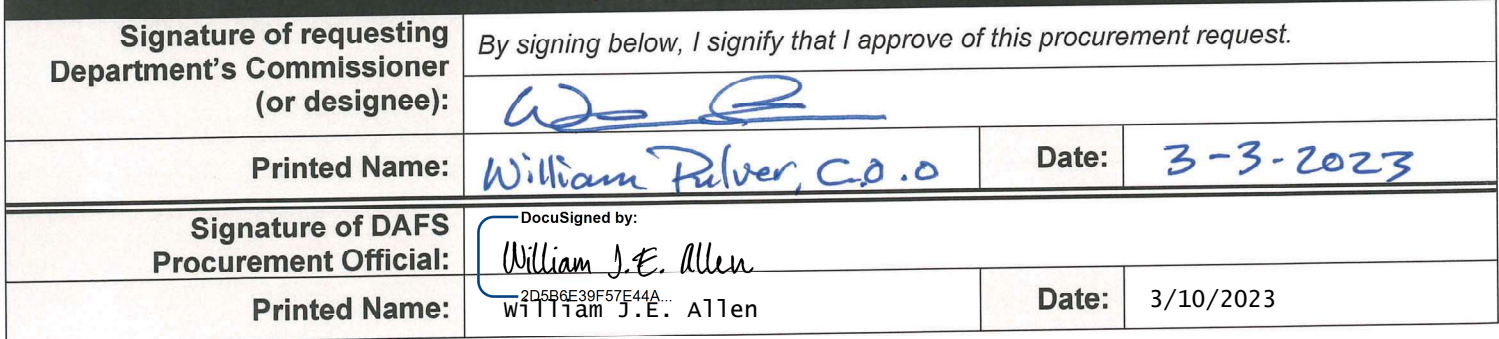 Signature of requesting
Department's Commissioner
(or designee):
By signing below, I signify that I approve of this procurement request.
Printed Name:
William Pulver, C.O.O
Date:
3-3-2023
Signature of DAFS
Procurement Official:
DocuSigned by:
William J.E. Allen
2D5B6E39F57E44A...
Printed Name:
William J.E. Allen
Date:
3/10/2023